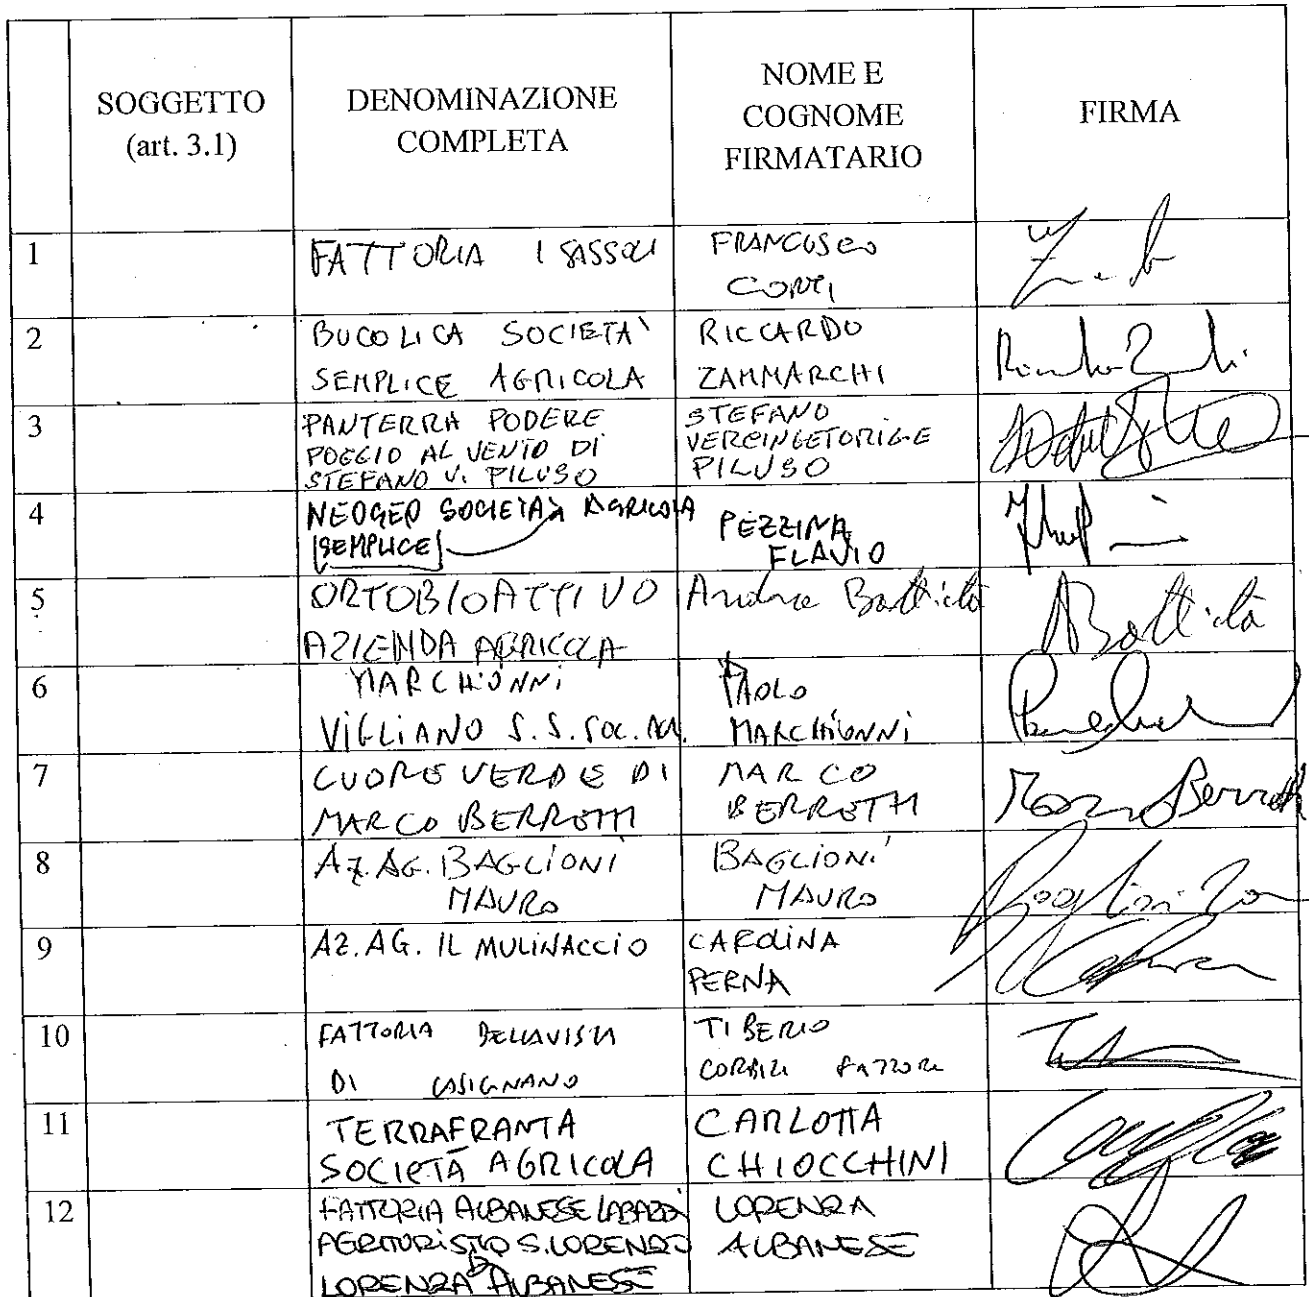 SOGGETTO
(art. 3.1)
DENOMINAZIONE
COMPLETA
NOME E
COGNOME
FIRMATARIO
FIRMA
1
FATTORIA I SASSOLI
FRANCESCO
CONTI
2
BUCOLICA SOCIETA'
SEMPLICE AGRICOLA
RICCARDO
ZAMMARCHI
3
PANTERRA PODERE
POGGIO AL VENTO DI
STEFANO V. PILUSO
STEFANO
VERCINGETORIGE
PILUSO
4
NEOGEO SOCIETÀ AGRICOLA
SEMPLICE
PEZZINA
FLAVIO
5
ORTOBIOATTIVO
AZIENDA AGRICOLA
Andrea Battiata
ABattiata
6
MARCHIONNI
VIGLIANO S.S. SOC. AGR.
PAOLO
MARCHIONNI
7
CUORE VERDE DI
MARCO BERRETTI
MARCO
BERRETTI
Marco Berretti
8
AZ. AG. BAGLIONI
MAURO
BAGLIONI
MAURO
9
AZ. AG. IL MULINACCIO
CAROLINA
PERNA
10
FATTORIA BELLAVISTA
DI CASIGNANO
TIBERIO
CORBIZI FATTORI
11
TERRAFRANTA
SOCIETÀ AGRICOLA
CARLOTTA
CHIOCCHINI
12
FATTORIA ALBANESE LABARDI
AGRITURISMO S. LORENZO
LORENZA ALBANESE
LORENZA
ALBANESE